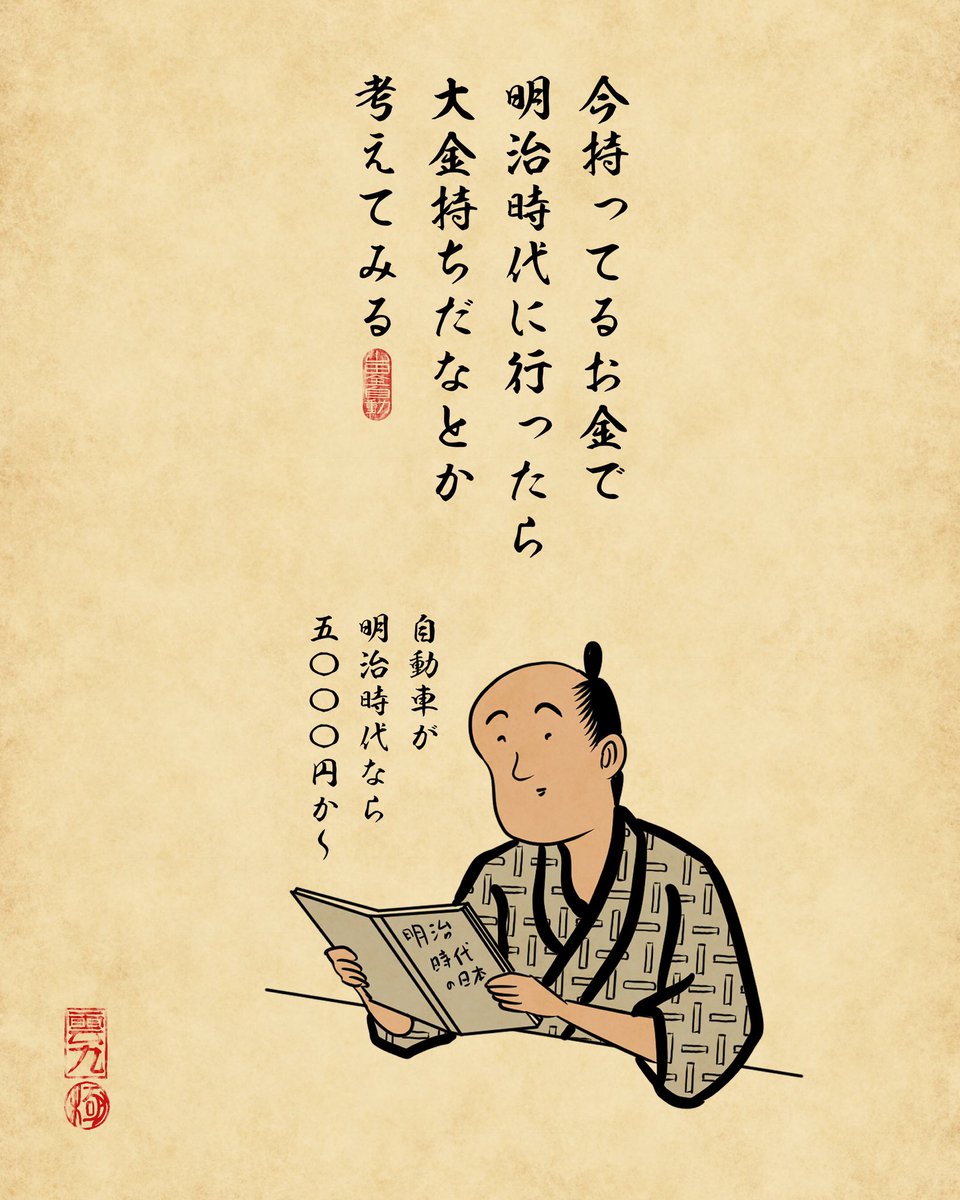 今持ってるお金で
明治時代に行ったら
大金持ちだなとか
考えてみる
自動車が
明治時代なら
五〇〇〇円か〜
明治
時代
の日本